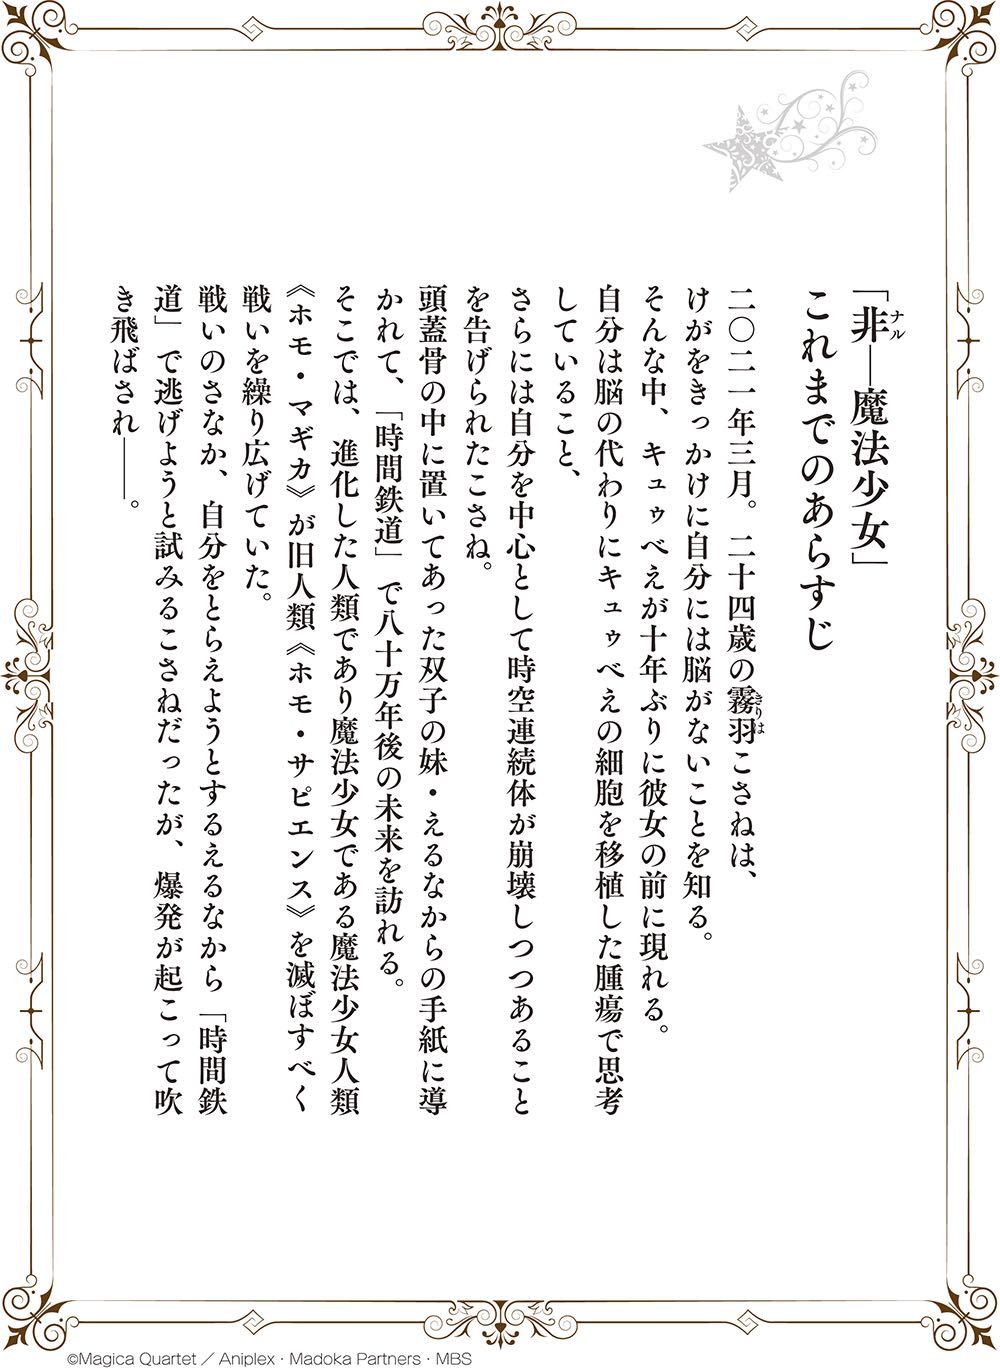 「非―魔法少女」
ナル
これまでのあらすじ
二〇二一年三月。二十四歳の霧羽こさねは、
きりは
けがをきっかけに自分には脳がないことを知る。
そんな中、キュゥべえが十年ぶりに彼女の前に現れる。
自分は脳の代わりにキュゥべえの細胞を移植した腫瘍で思考
していること、
さらには自分を中心として時空連続体が崩壊しつつあること
を告げられたこさね。
頭蓋骨の中に置いてあった双子の妹・えるなからの手紙に導
かれて、「時間鉄道」で八十万年後の未来を訪れる。
そこでは、進化した人類であり魔法少女である魔法少女人類
《ホモ・マギカ》が旧人類《ホモ・サピエンス》を滅ぼすべく
戦いを繰り広げていた。
戦いのさなか、自分をとらえようとするえるなから「時間鉄
道」で逃げようと試みるこさねだったが、爆発が起こって吹
き飛ばされ――。
©Magica Quartet／Aniplex・Madoka Partners・MBS